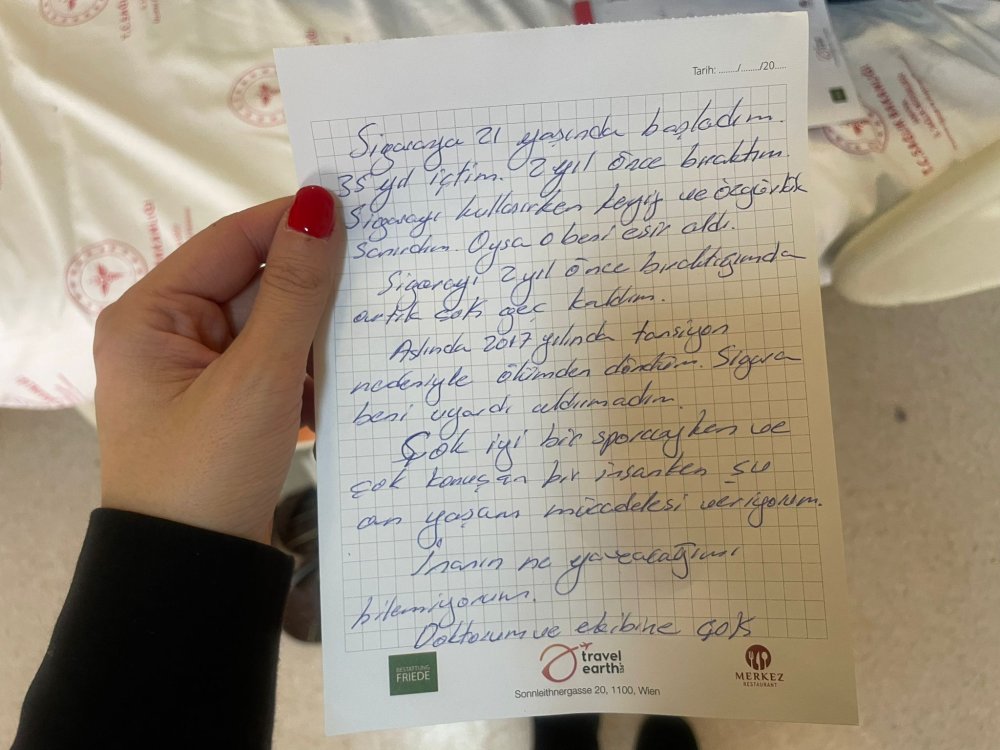 Tarih: ......./......./20.....
Sigaraya 21 yaşında başladım.
35 yıl içtim. 2 yıl önce bıraktım.
Sigarayı kullanırken keyif ve özgürlük
sanırdım. Oysa o beni esir aldı.
Sigarayı 2 yıl önce bıraktığımda
artık çok geç kaldım.
Aslında 2017 yılında tansiyon
nedeniyle ölümden döndüm. Sigara
beni uyardı aldırmadım.
Çok iyi bir sporcuyken ve
çok konuşan bir insanken şu
an yaşam mücadelesi veriyorum.
İnanın ne yazacağımı
bilemiyorum.
Doktorum ve ekibine çok
BESTATTUNG
FRIEDE
travel
earth
MERKEZ
RESTAURANT
Sonnleithnergasse 20, 1100, Wien
T.C. SAĞLIK BAKANLIĞI